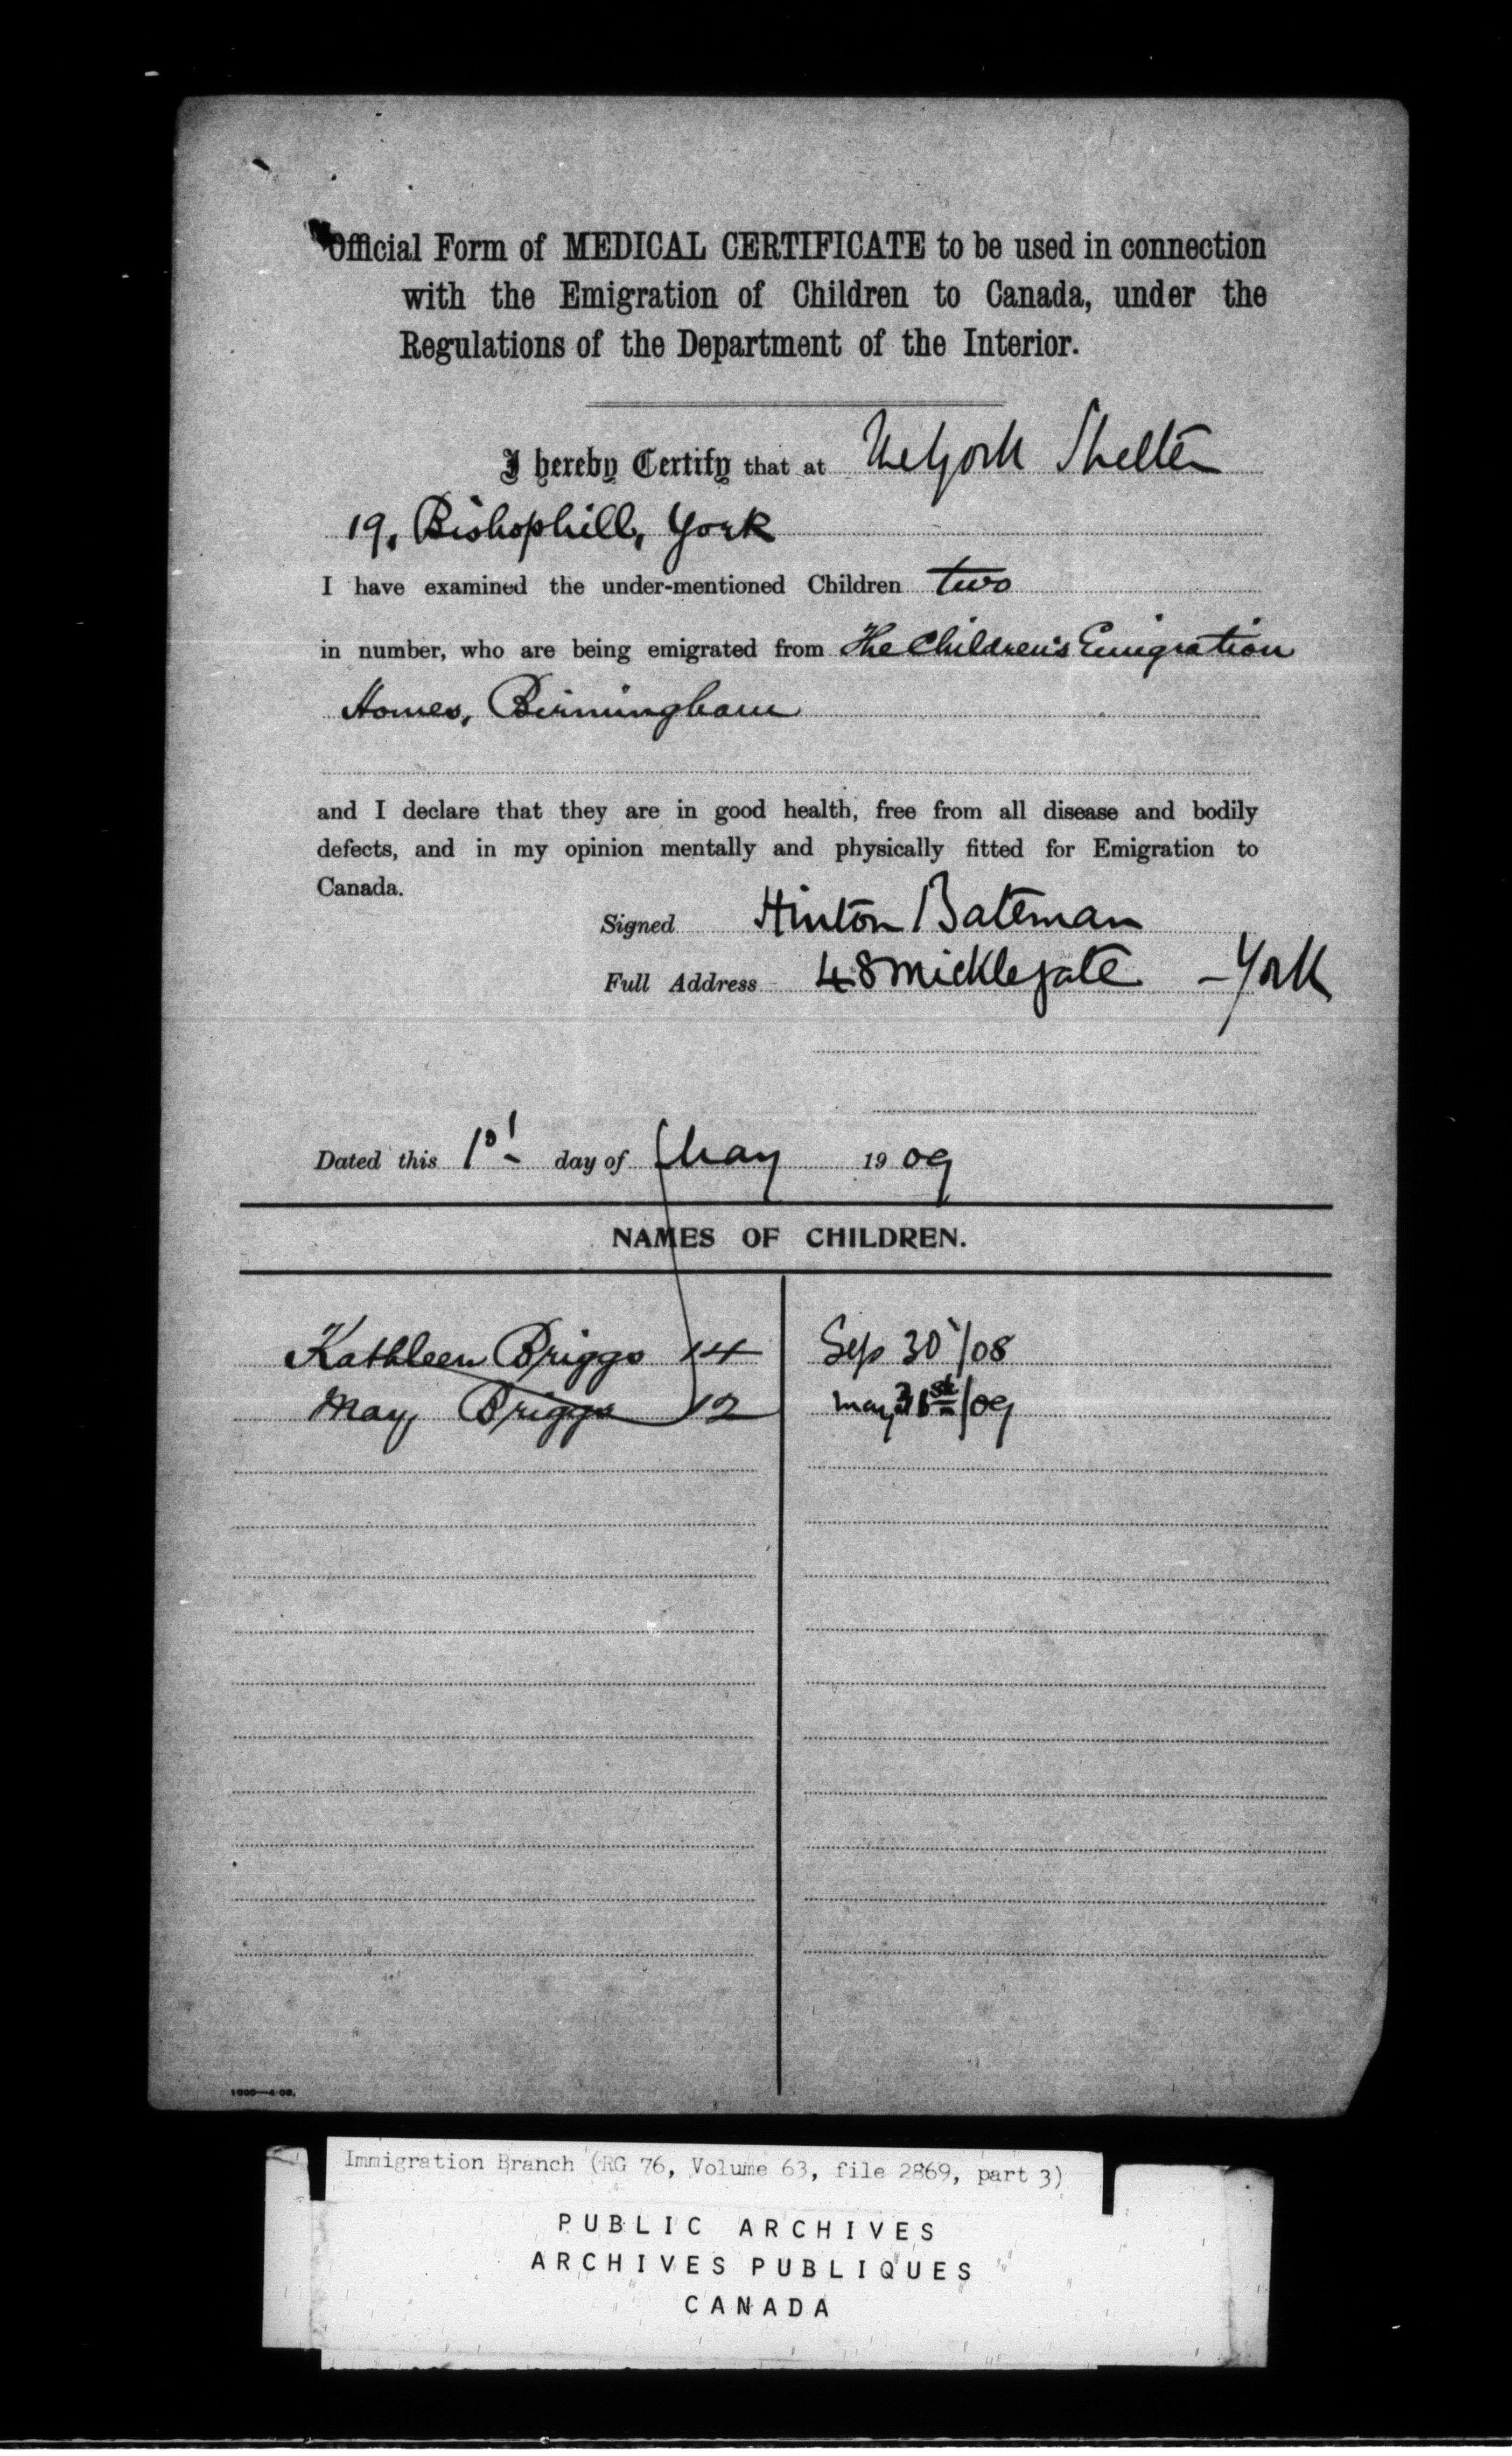 Official Form of MEDICAL CERTIFICATE to be used in connection
with the Emigration of Children to Canada, under the
Regulations of the Department of the Interior.
I hereby Certify that at The York Shelter
19, Bishophill, York
I have examined the under-mentioned Children two
in number, who are being emigrated from The Children's Emigration
Homes, Birmingham
and I declare that they are in good health, free from all disease and bodily
defects, and in my opinion mentally and physically fitted for Emigration to
Canada.
Signed Hinton Bateman
Full Address 48 Micklegate - York
Dated this 1st day of May 1909
NAMES OF CHILDREN.
Kathleen Briggs 14 Sep 30/08
May Briggs 12 May 31st/09
1000—4-08.
Immigration Branch (RG 76, Volume 63, file 2869, part 3)
PUBLIC ARCHIVES
ARCHIVES PUBLIQUES
CANADA